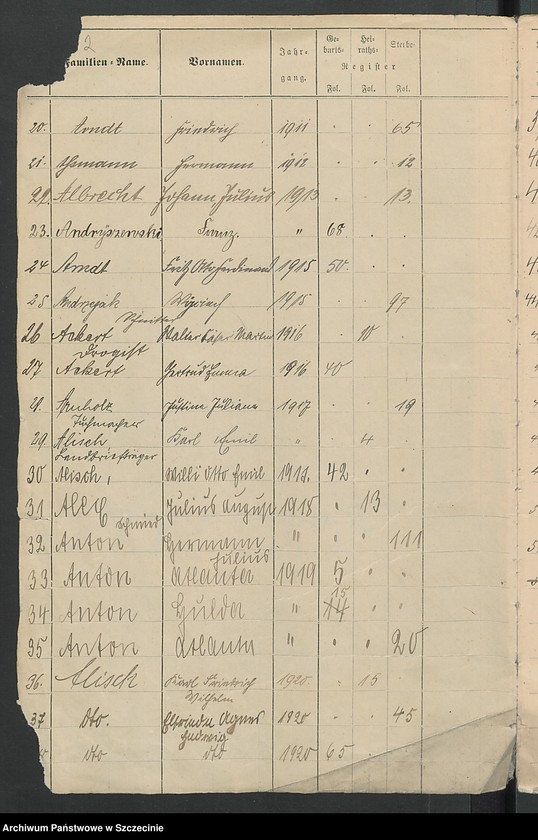 2
Familien-Name. Vornamen. Jahrgang. Geburts- Heiraths- Sterbe-
Register
Fol. Fol. Fol.
20. Arndt Friedrich 1911 . . 65
21. Hermann 1912 . . 12
22. Albrecht Johann Julius 1913 . . 13.
23. Andryszewski Franz. " 68 . .
24 Arndt Fritz Otto Ferdinand 1915 50. . .
25 Andrzejak 1915 . . 97
Schnitter
26 Ackert Walter Martin 1916 . 10 .
Drogist
27 Ackert Gertrud Emma 1916 40
Justine Juliane 1917 . . 19
29. Alisch Karl Emil " . 4 .
Landbriefträger
30 Alisch, Willi Otto Emil 1918. 42 . .
31 Julius August 1918 . 13 .
Schmied
32 Anton Hermann " . . 111
Julius
33 Anton Atlanta 1919 5 . .
15
34 Anton Hulda " 14 . .
35 Anton Atlanta " . . 20
36. Alisch Karl Friedrich 1920. . 15
Wilhelm
37 dto. Elfriede Agnes 1920 . . 45
Hedwig
dto dto 1920 65 . .
Archiwum Państwowe w Szczecinie